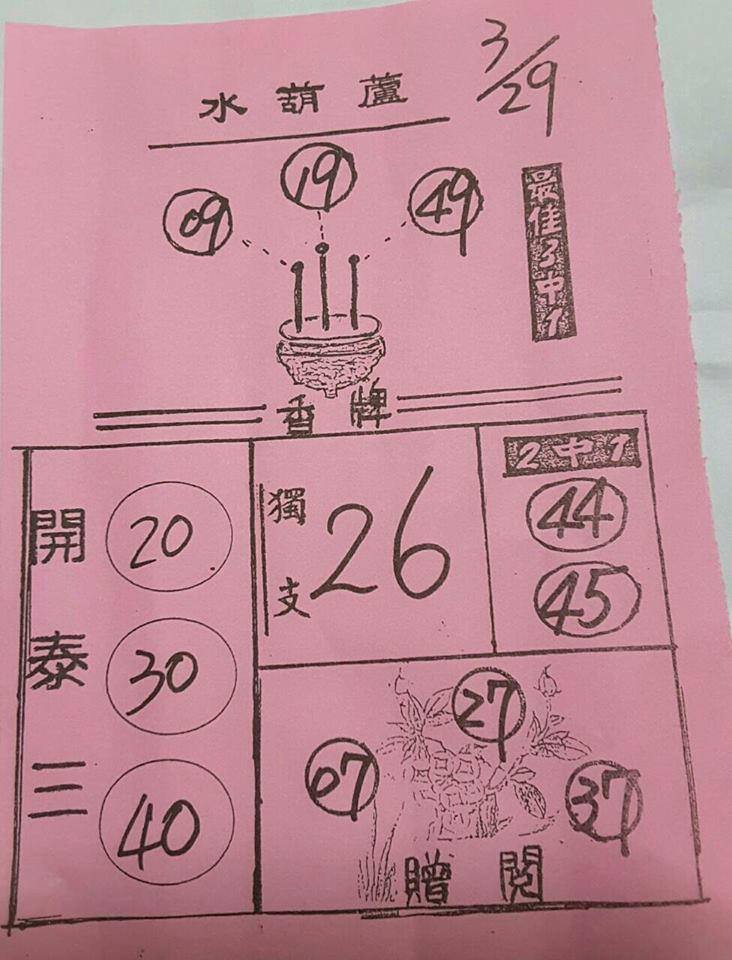 水葫蘆
3/29
09
19
49
最佳3中1
香牌
開泰三
20
30
40
獨支
26
2中1
44
45
07
27
37
贈閱